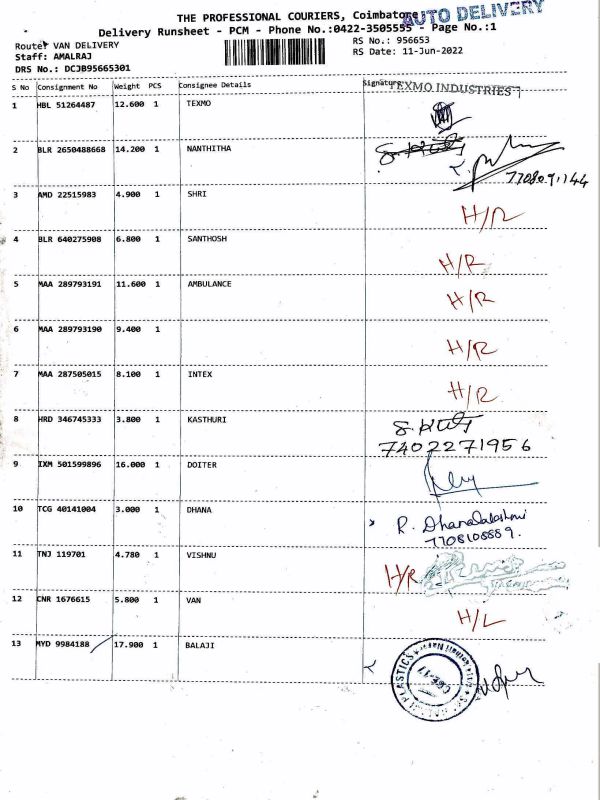 THE PROFESSIONAL COURIERS, Coimbatore
AUTO DELIVERY
Delivery Runsheet - PCM - Phone No.:0422-3505555 - Page No.:1
Route: VAN DELIVERY RS No.: 956653
Staff: AMALRAJ RS Date: 11-Jun-2022
DRS No.: DCJB95665301
S No Consignment No Weight PCS Consignee Details Signature TEXMO INDUSTRIES
1 HBL 51264487 12.600 1 TEXMO
2 BLR 2650488668 14.200 1 NANTHITHA
3 AMD 22515983 4.900 1 SHRI
H/R
4 BLR 640275908 6.800 1 SANTHOSH
H/R
5 MAA 289793191 11.600 1 AMBULANCE
H/R
6 MAA 289793190 9.400 1
H/R
7 MAA 287505015 8.100 1 INTEX
H/R
8 HRD 346745333 3.800 1 KASTHURI
7402271956
9 IXM 501599896 16.000 1 DOITER
10 TCG 40141004 3.000 1 DHANA
R. Dhanalakshmi
11 TNJ 119701 4.780 1 VISHNU
H/R
12 CNR 1676615 5.800 1 VAN
H/L
13 MYD 9984188 17.900 1 BALAJI
PLASTICS